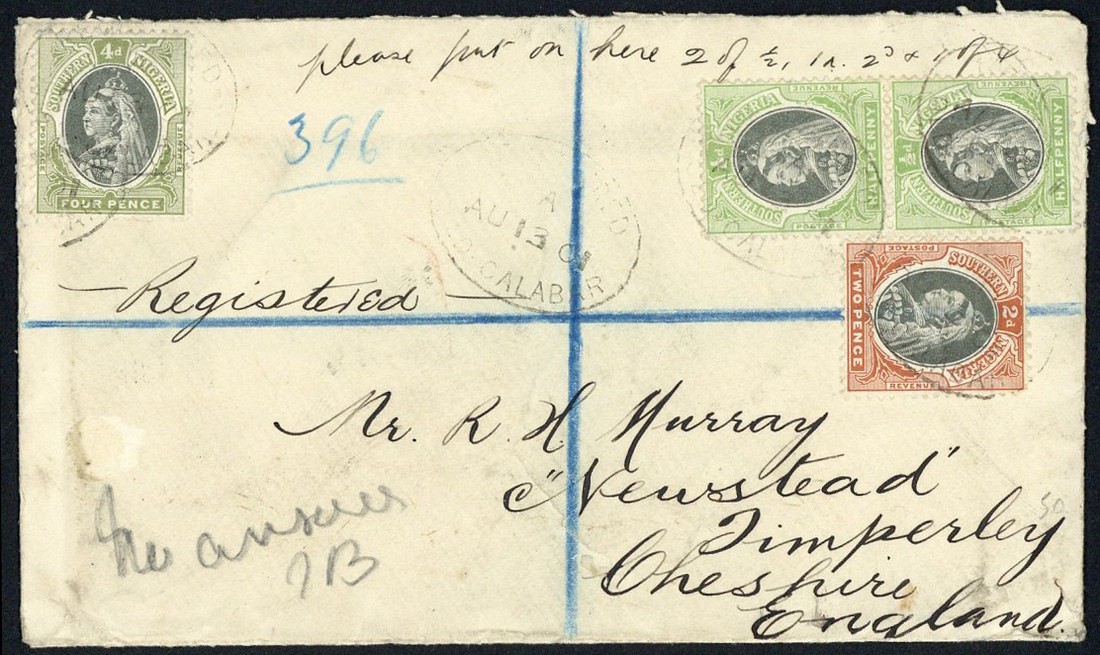 please put on here 2 of ½, 1 2d & 1 of 4
4d
SOUTHERN NIGERIA
POSTAGE
REVENUE
FOUR PENCE
396
½d
SOUTHERN NIGERIA
REVENUE
POSTAGE
HALFPENNY
½d
SOUTHERN NIGERIA
REVENUE
POSTAGE
HALFPENNY
A
AU 13 01
OLD CALABAR
Registered
2d
SOUTHERN NIGERIA
POSTAGE
REVENUE
TWO PENCE
Mr. R. H Murray
"Newstead"
Timperley
Cheshire
England.
answer
JB
50